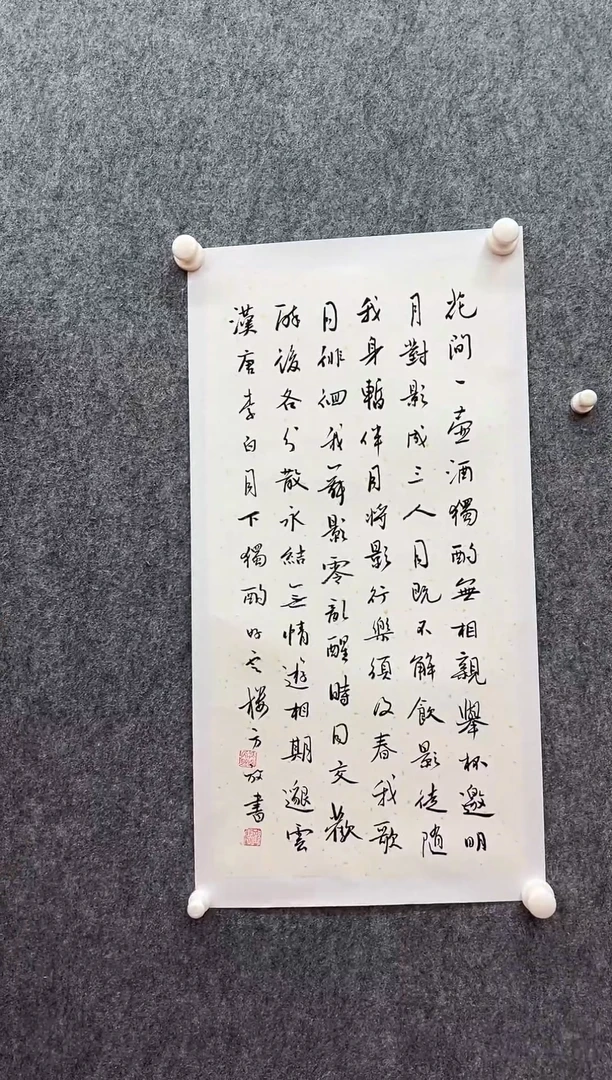 花間一壺酒獨酌無相親舉杯邀明
月對影成三人月既不解飲影徒隨
我身暫伴月將影行樂須及春我歌
月徘徊我舞影零乱醒時同交歡
醉後各分散永結無情遊相期邈雲
漢唐李白月下獨酌樓方放書